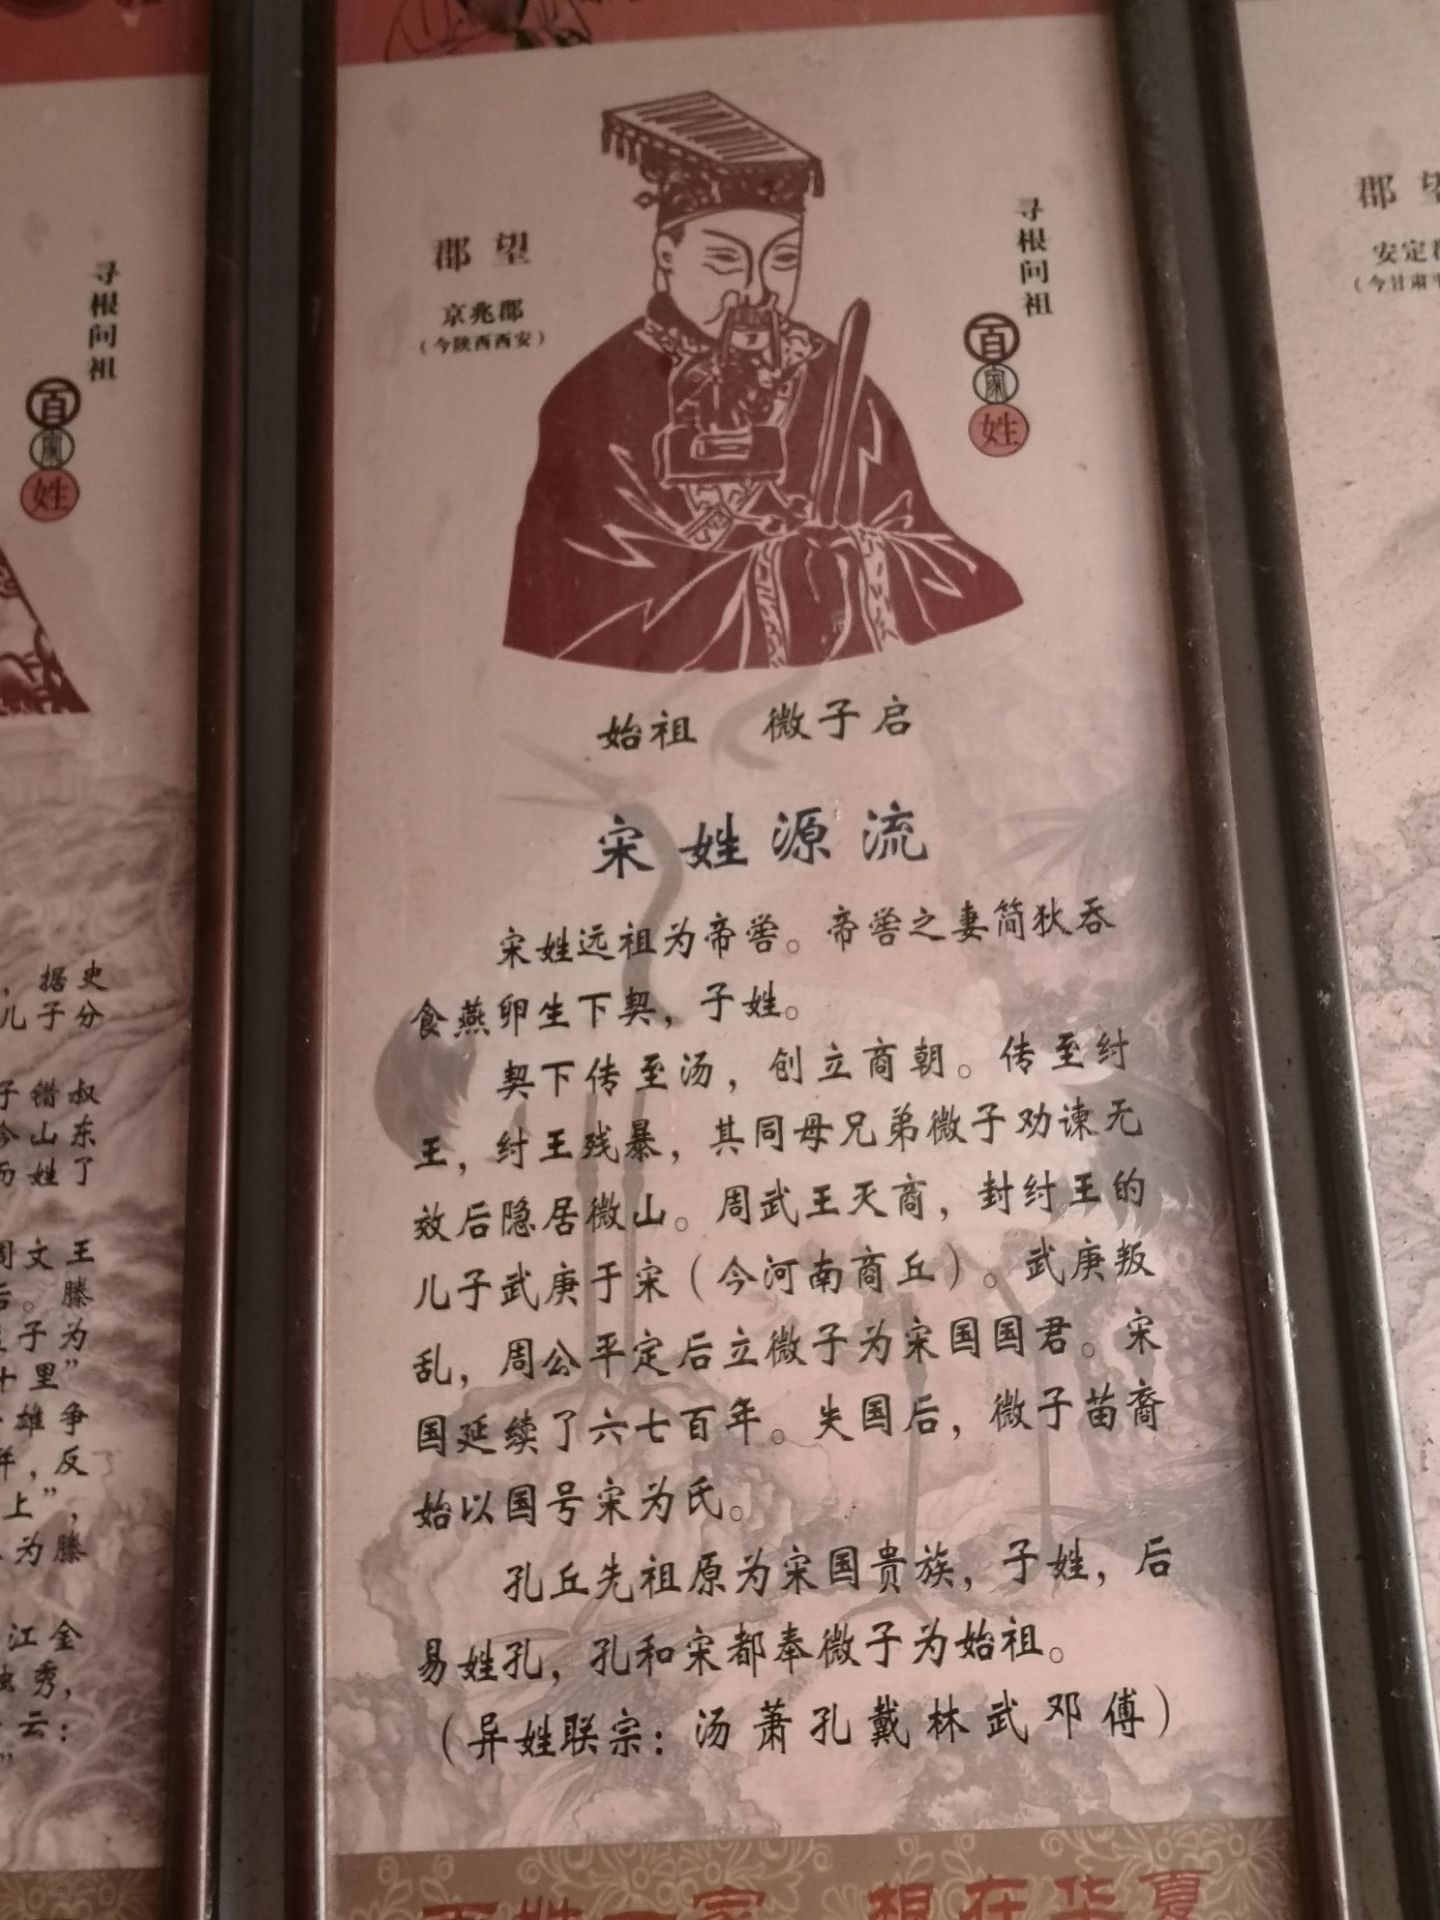 寻根问祖
百家姓
，据史
儿子分
子错叔
今山东
而姓了
周文王
后。滕
生子为
十里”
雄争
反
上”，
为滕
江金
秀，
云：
郡望
京兆郡
（今陕西西安）
寻根问祖
百家姓
始祖 微子启
宋姓源流
宋姓远祖为帝喾。帝喾之妻简狄吞
食燕卵生下契，子姓。
契下传至汤，创立商朝。传至纣
王，纣王残暴，其同母兄弟微子劝谏无
效后隐居微山。周武王灭商，封纣王的
儿子武庚于宋（今河南商丘）。武庚叛
乱，周公平定后立微子为宋国国君。宋
国延续了六七百年。失国后，微子苗裔
始以国号宋为氏。
孔丘先祖原为宋国贵族，子姓，后
易姓孔，孔和宋都奉微子为始祖。
（异姓联宗：汤萧孔戴林武邓傅）
百姓一家 根在华夏
郡望
安定
（今甘肃